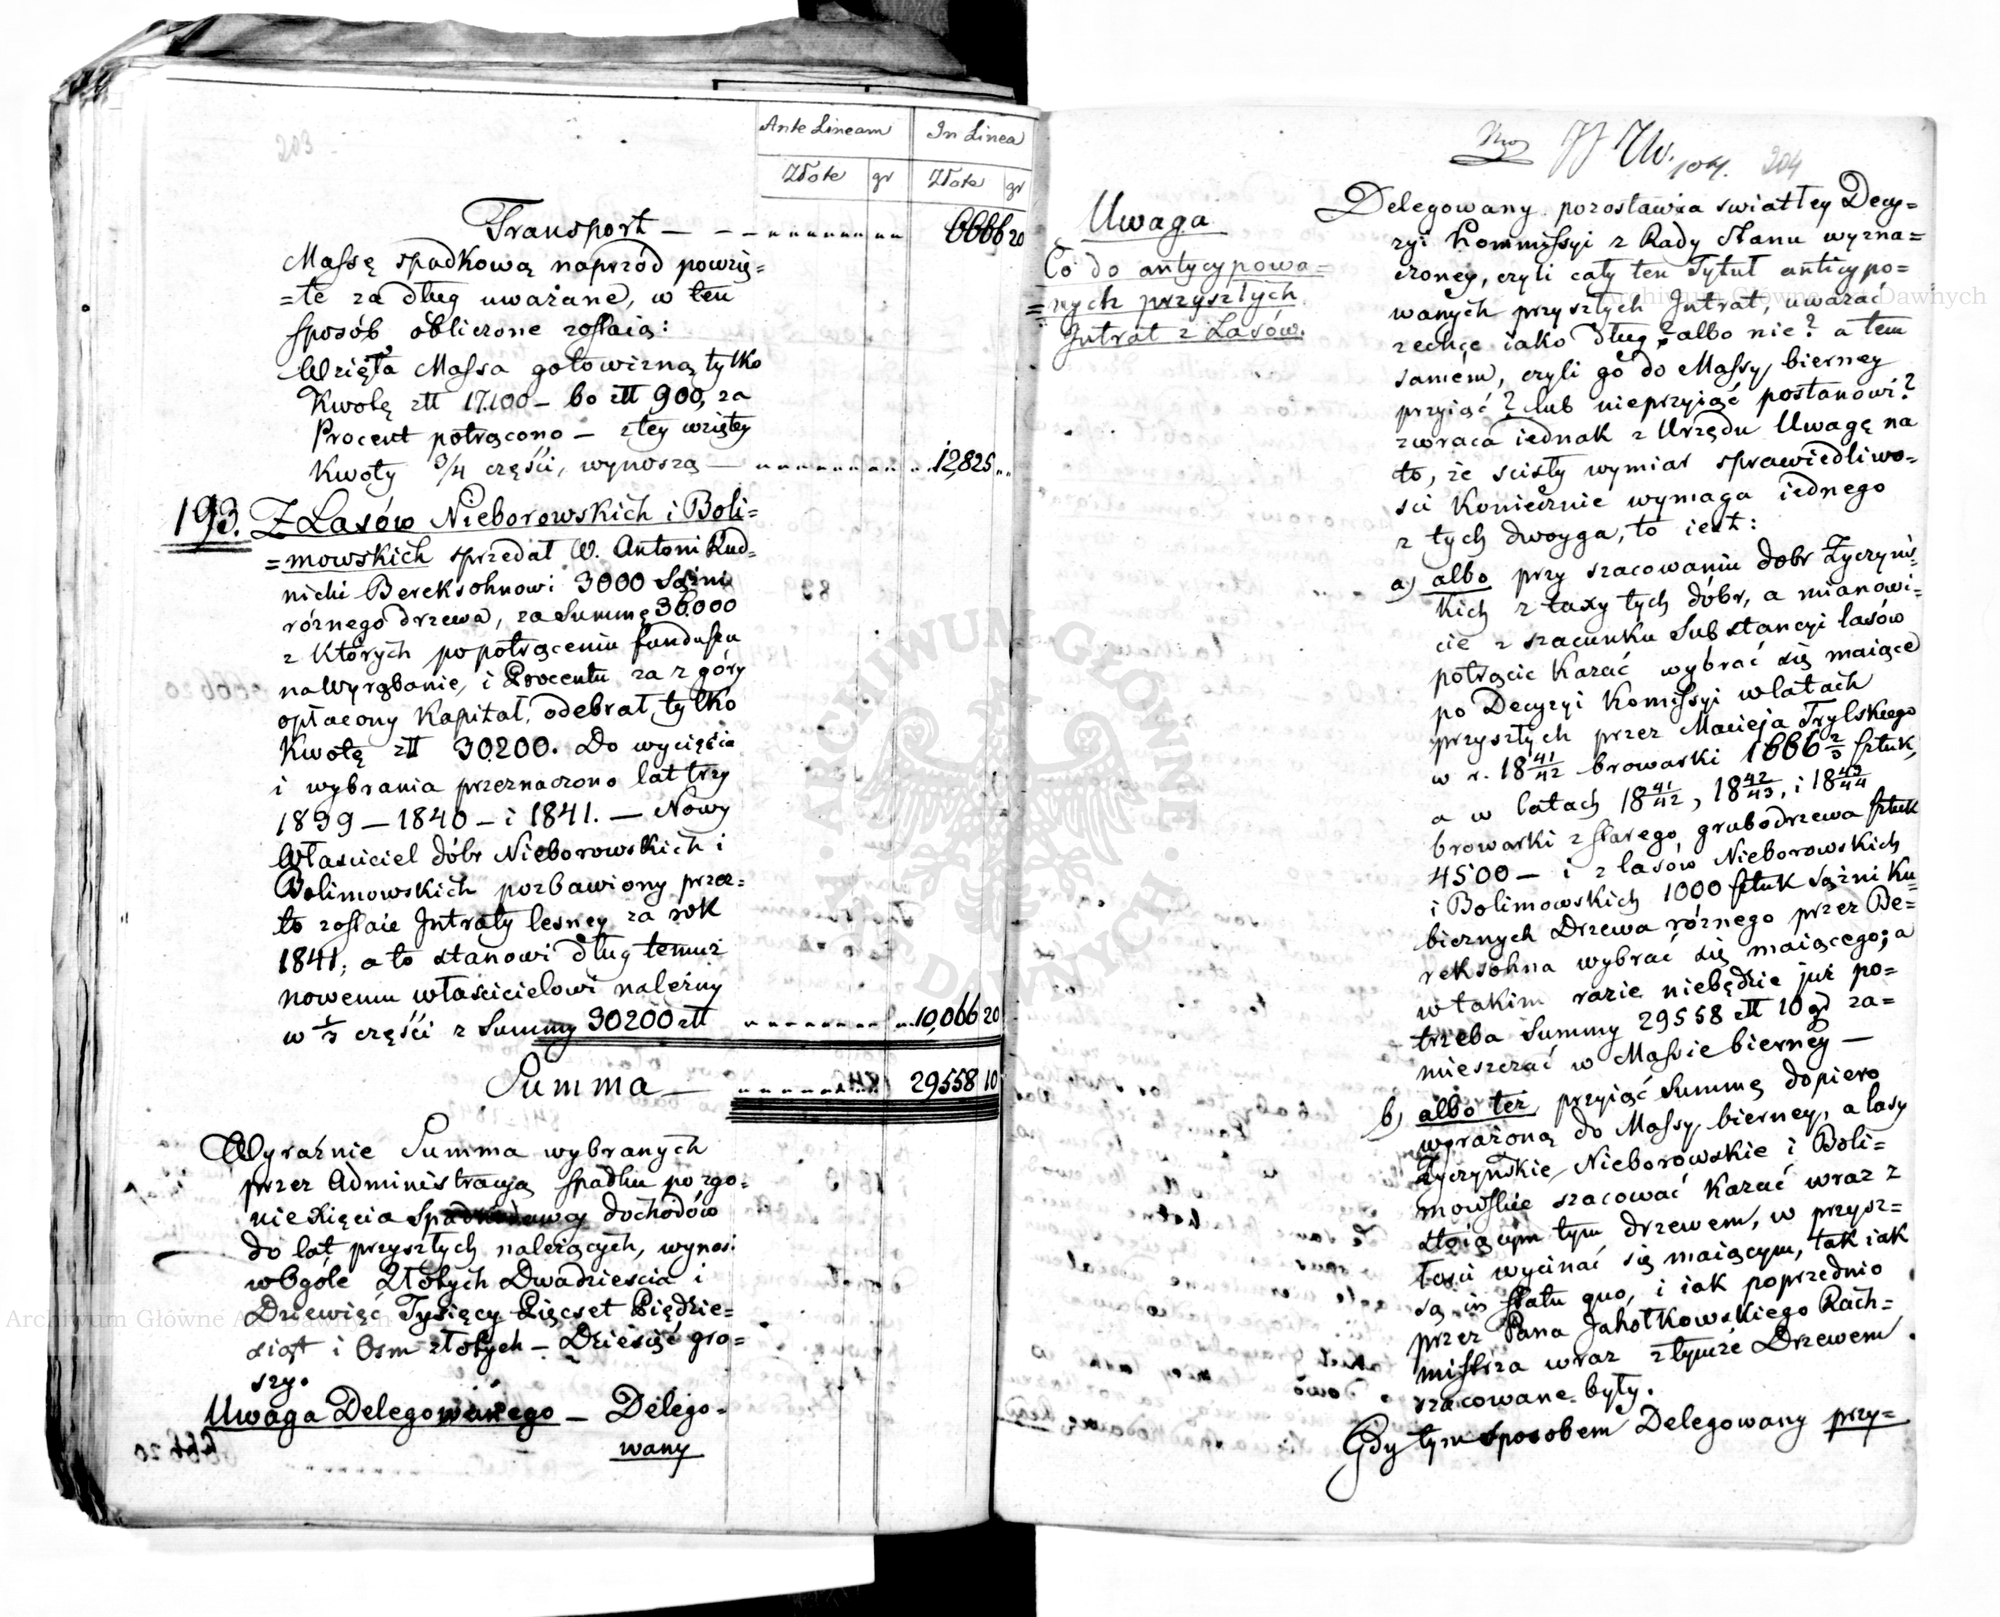 203
Ante Lineam | In Linea
Złote | gr | Złote | gr
Transport — 6666 20
Massę spadkową naprzód powzię=
=te za dług uważane, w ten
sposób obliczone zostaią:
Wzięła Massa gotowizną tylko
Kwotę złł 17.100 — bo złł 900, za
Procent potrącono — z tey wziętey
Kwoty 3/4 części, wynoszą — 12,825
193. Z Lasów Nieborowskich i Boli=
=mowskich sprzedał W. Antoni Rud=
nicki Bereksohnowi 3000 Sążni
różnego drzewa, za Summę 36.000
z których po potrąceniu funduszu
na wyrąbanie, i Procentu za z góry
opłacony Kapitał, odebrał tylko
Kwotę złł 30.200. Do wycięcia
i wybrania przeznaczono lat trzy
1839 — 1840 — i 1841. — Nowy
Właściciel dóbr Nieborowskich i
Bolimowskich pozbawiony przez=
to zostaie Intraty lesney za rok
1841; a to stanowi dług temuż
nowemu właścicielowi należny
w 1/3 części z Summy 30200 złł 10,066 20
Summa — 29558 10
Wyraźnie Summa wybranych
przez Administracyą spadku po zgo=
nie Xięcia dochodów
do lat przyszłych należących, wynosi
w Ogóle Złotych Dwadzieścia i
Dziewięć Tysięcy Pięćset Pięćdzie=
siąt i Osm złotych — Dziesięć gro=
szy.
Uwaga Delegowanego — Delego=
wany
104. 204
Uwaga
Co do antycypowa=
=nych przyszłych
Intrat z Lasów.
Delegowany pozostawia swiatłey Decy=
zyi Kommissyi z Rady Stanu wyzna=
czoney, czyli cały ten Tytuł anticypo=
wanych przyszłych Intrat, uważać
zechce iako dług? albo nie? a tem
samem, czyli go do Massy bierney
przyiąć? lub nieprzyiąć postanowi?
zwraca iednak z Urzędu Uwagę na
to, że scisły wymiar sprawiedliwo=
sci Koniecznie wymaga iednego
z tych dwoyga, to iest:
a) albo przy szacowaniu dobr Zyczyńs=
kich z taxy tych dóbr, a mianowi=
cie z szacunku Substancyi lasów
potrącić Kazać wybrać się maiące
po Decyzyi Komissyi w latach
przyszłych przez Macieja Trylskiego
w r. 18 41/42 browarki 1666 2/3 sztuk,
a w latach 18 41/42, 18 42/43, i 18 43/44
browarki z starego grubodrzewa sztuk
4500 — i z lasów Nieborowskich
i Bolimowskich 1000 sztuk sążni Ku=
bicznych Drzewa różnego przez Be=
reksohna wybrać się maiącego; a
w takim razie niebędzie już po=
trzeba Summy 29558 złł 10 gr za=
mieszczać w Massie bierney —
b) albo też przyiąć Summę dopiero
wyrażoną do Massy bierney, a lasy
Zyczyńskie, Nieborowskie i Boli=
mowskie szacować Kazać wraz z
stoiącym tym drzewem, w przysz=
łosci wycinać się maiącym, tak iak
są in statu quo, i iak poprzednio
przez Pana Jahołkowskiego Rach=
mistrza wraz z tymże Drzewem
szacowane były.
Gdy tym sposobem Delegowany przy=
Archiwum Główne Akt Dawnych
ARCHIWUM GŁÓWNE AKT DAWNYCH
Archiwum Główne Akt Dawnych